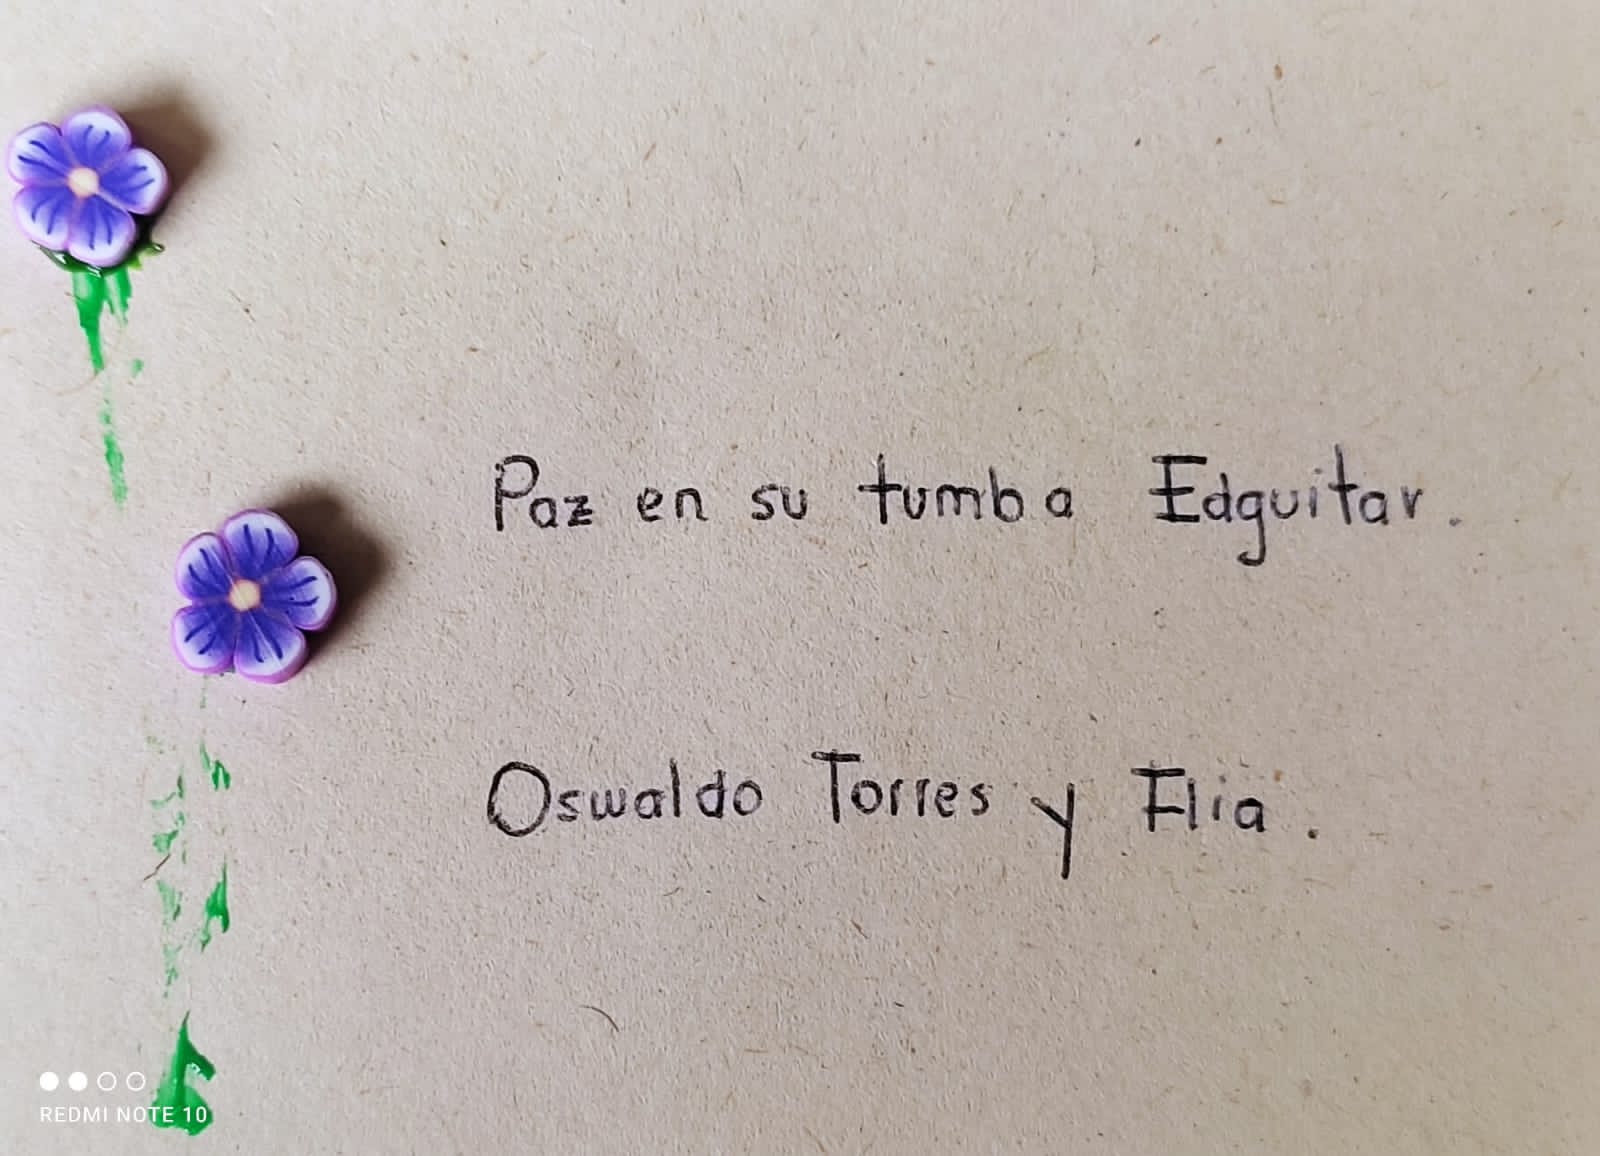 Paz en su tumba Edguitar.
Oswaldo Torres y Flia.
REDMI NOTE 10